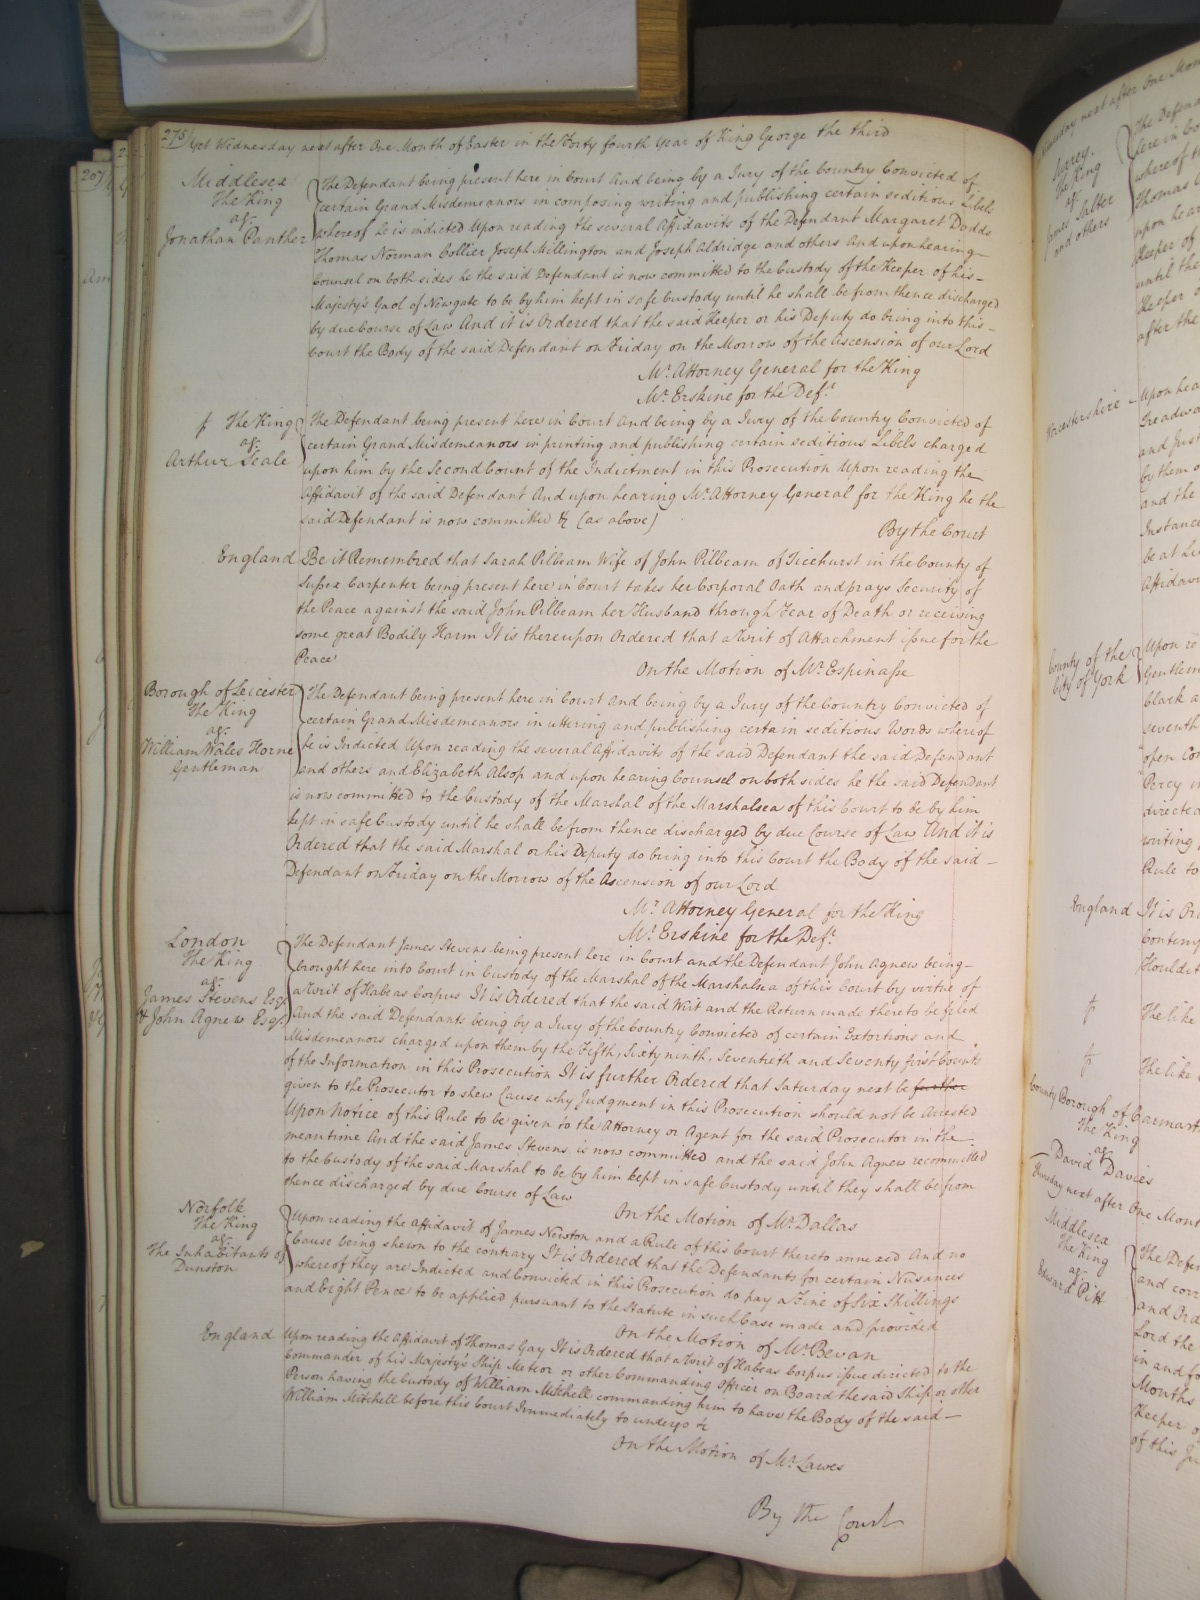 275/ Yet Wednesday next after One Month of Easter in the Forty fourth Year of King George the third
Middlesex
The King
agt.
Jonathan Panther
The Defendant being present here in Court And being by a Jury of the Country Convicted of
certain Grand Misdemeanors in composing writing and publishing certain seditious Libels
whereof he is indicted Upon reading the several Affidavits of the Defendant Margaret Dodds
Thomas Norman Collier Joseph Millington and Joseph Aldridge and others And upon hearing
Counsel on both sides he the said Defendant is now committed to the Custody of the Keeper of his –
Majesty's Gaol of Newgate to be by him kept in safe Custody until he shall be from thence discharged
by due Course of Law And it is Ordered that the said Keeper or his Deputy do bring into this –
Court the Body of the said Defendant on Friday on the Morrow of the Ascension of our Lord
Mr. Attorney General for the King
Mr. Erskine for the Deft.
The King
agt.
Arthur Seale
The Defendant being present here in Court And being by a Jury of the Country Convicted of
certain Grand Misdemeanors in printing and publishing certain seditious Libels charged
upon him by the Second Count of the Indictment in this Prosecution Upon reading the
Affidavit of the said Defendant And upon hearing Mr. Attorney General for the King he the
said Defendant is now committed &c (as above)
By the Court
England
Be it Remembred that Sarah Pilbeam Wife of John Pilbeam of Ticehurst in the County of
Sussex Carpenter being present here in Court takes her Corporal Oath and prays Security of
the Peace against the said John Pilbeam her Husband through Fear of Death or receiving
some great Bodily Harm It is thereupon Ordered that a Writ of Attachment issue for the
Peace
On the Motion of Mr. Espinasse
Borough of Leicester
The King
agt.
William Wales Horne
Gentleman
The Defendant being present here in Court And being by a Jury of the Country Convicted of
certain Grand Misdemeanors in uttering and publishing certain seditious Words whereof
he is Indicted Upon reading the several Affidavits of the said Defendant the said Defendant
and others and Elizabeth Alsop and upon hearing Counsel on both sides he the said Defendant
is now committed to the Custody of the Marshal of the Marshalsea of this Court to be by him
kept in safe Custody until he shall be from thence discharged by due Course of Law And it is
Ordered that the said Marshal or his Deputy do bring into this Court the Body of the said –
Defendant on Friday on the Morrow of the Ascension of our Lord
Mr. Attorney General for the King
Mr. Erskine for the Deft.
London
The King
agt.
James Stevens Esqr.
& John Agnew Esqr.
The Defendant James Stevens being present here in Court and the Defendant John Agnew being –
brought here into Court in Custody of the Marshal of the Marshalsea of this Court by virtue of
a Writ of Habeas Corpus It is Ordered that the said Writ and the Return made thereto be filed
And the said Defendants being by a Jury of the Country Convicted of certain Extortions and
Misdemeanors charged upon them by the Fifth, Sixty ninth, Seventieth and Seventy first Counts
of the Information in this Prosecution It is further Ordered that Saturday next be further
given to the Prosecutor to shew Cause why Judgment in this Prosecution should not be Arrested
Upon Notice of this Rule to be given to the Attorney or Agent for the said Prosecutor in the
mean time And the said James Stevens is now committed and the said John Agnew recommitted
to the Custody of the said Marshal to be by him kept in safe Custody until they shall be from
thence discharged by due Course of Law
On the Motion of Mr. Dallas
Norfolk
The King
agt.
The Inhabitants of
Dunston
Upon reading the Affidavit of James Newton and a Rule of this Court thereto annexed And no
Cause being shewn to the contrary It is Ordered that the Defendants for certain Nusances
whereof they are Indicted and Convicted in this Prosecution do pay a Fine of Six Shillings
and Eight Pence to be applied pursuant to the Statute in such Case made and provided
On the Motion of Mr. Bevan
England
Upon reading the Affidavit of Thomas Gay It is Ordered that a Writ of Habeas Corpus issue directed to the
Commander of his Majesty's Ship Meteor or other Commanding Officer on Board the said Ship or other
Person having the Custody of William Mitchell commanding him to have the Body of the said –
William Mitchell before this Court Immediately to undergo &c
On the Motion of Mr. Lawes
By the Court
Surrey.
The King
agt.
James Salter
and others
Worcestershire
County of the
City of York
England
The like
The like
County Borough of Carmarthen
The King
agt
David Davies
Thursday next after One Month
Middlesex
The King
agt
Edward Pitt